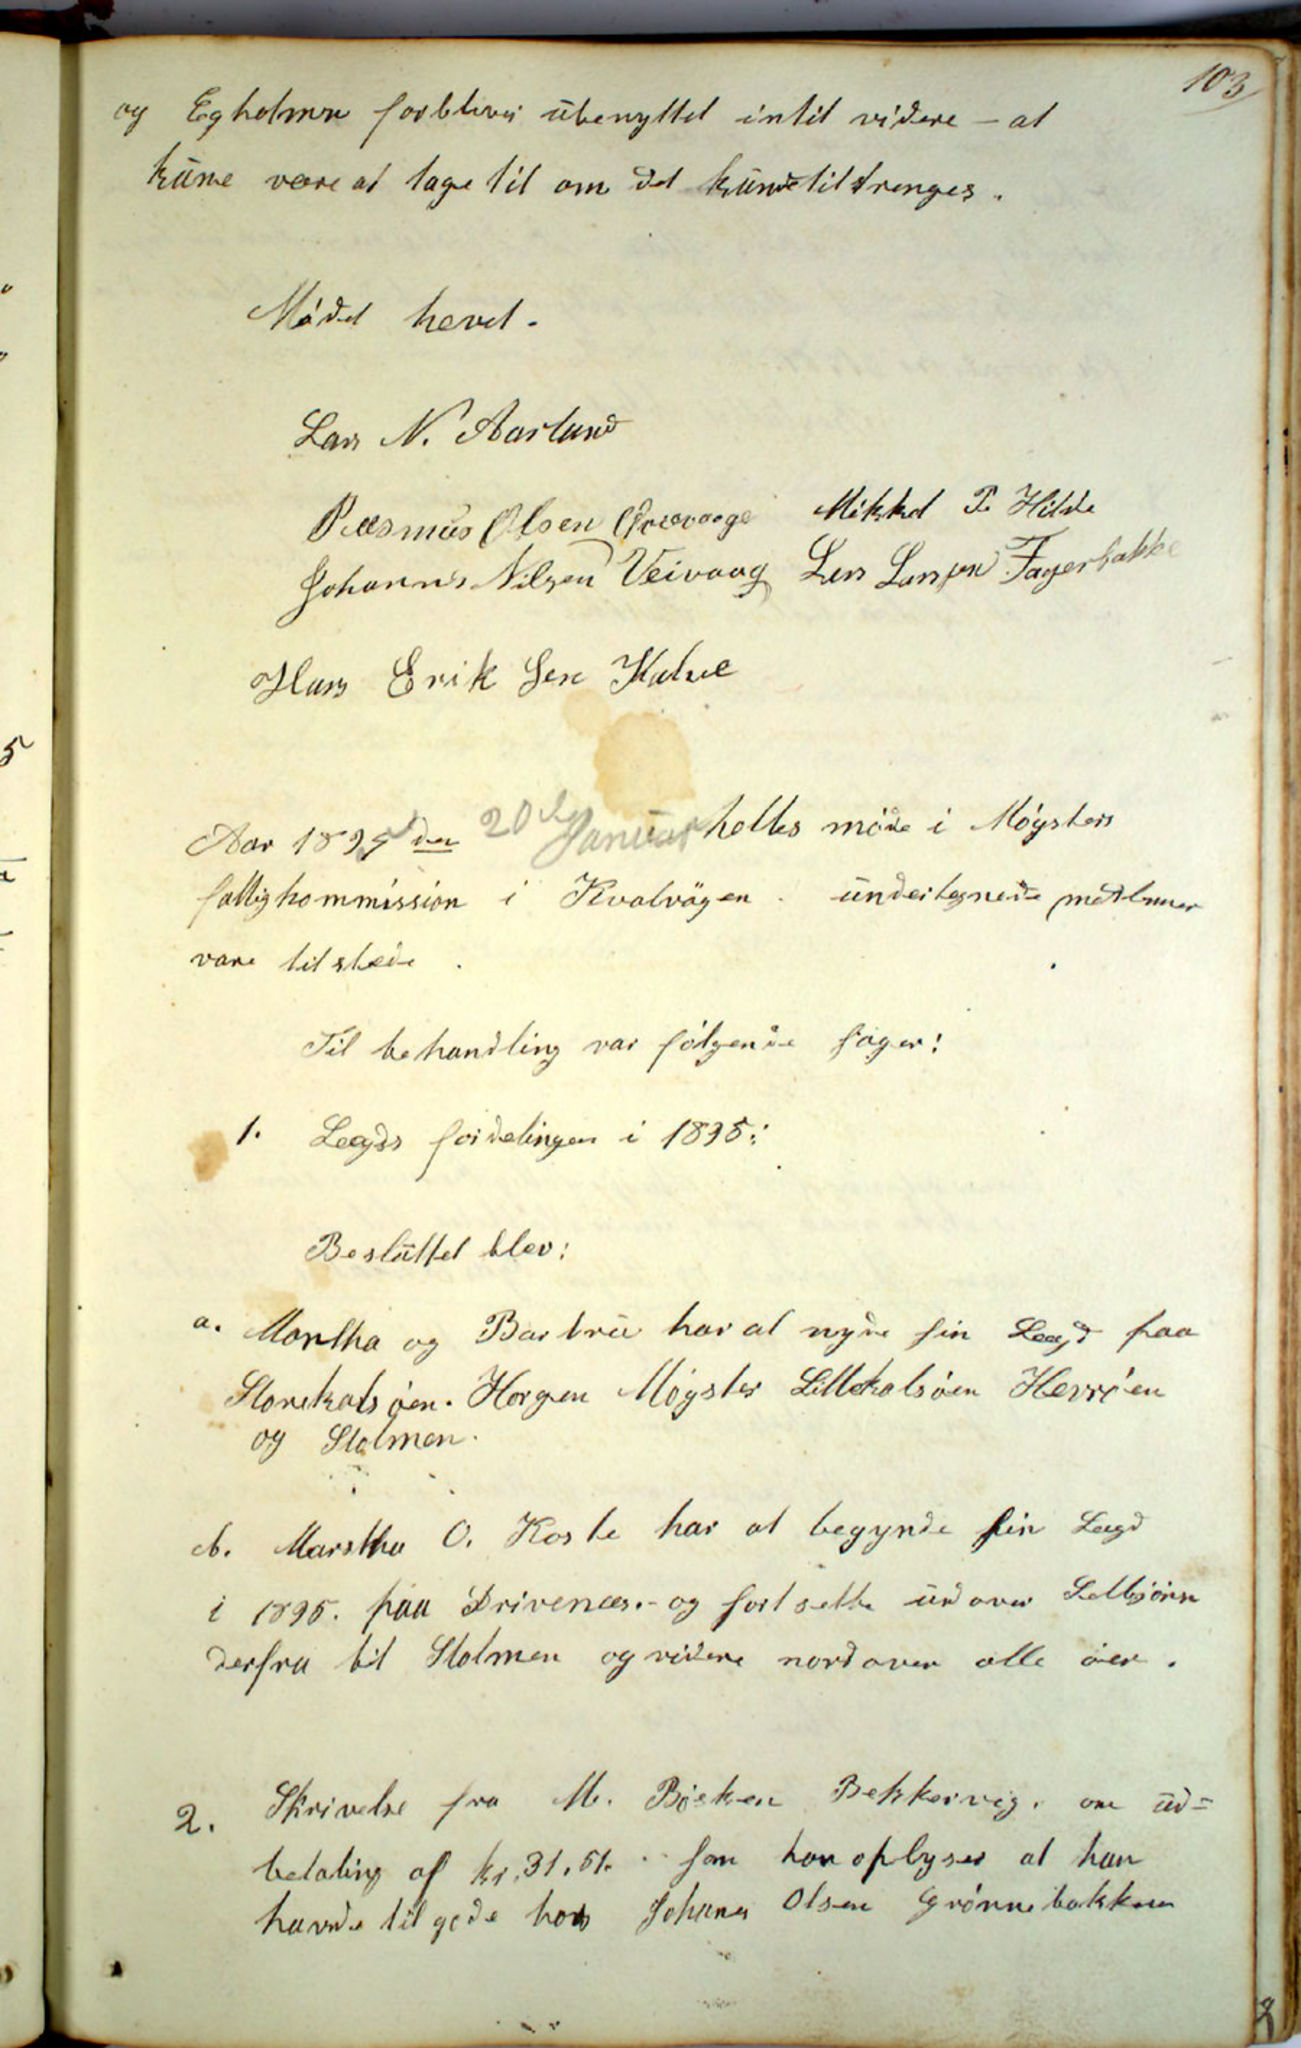 103
og Egholmen forbliver ubenyttet intil videre - at
kunne være at tage til om det kunde tiltrenges.
Mödet hævet.
Lars N. Aarland
Rasmus Olsen Græevaage Mikkel P. Hilde
Johannis Nilsen Veivaag Lars Larssen Fagerbakke
Hans Erik Sen Kalve
Aar 1895 den 20de Januar holtes möde i Möysters
fattigkommission i Kvalvågen. undertegnede medlemer
vare tilstæde.
Til behandling var fölgende sager:
1. Lægds fordelingen i 1895:
Besluttet blev:
a. Martha og Barbru har at nyde sin Lægd paa
Storekalsöen. Horgen Möyster Lillekalsöen Herröen
og Stolmen.
b. Marstha O. Koste har at begynde sin Lægd
i 1895. paa Drivenæs. - og fortsette udover Selbjörn
derfra til Stolmen og videre nordover alle öer.
2. Skrivelse fra M. Bösken Bekkervig. om ud=
betaling af kr. 31,51. som han oplyser at han
havde tilgode hos Johanes Olsen Grönnebakken